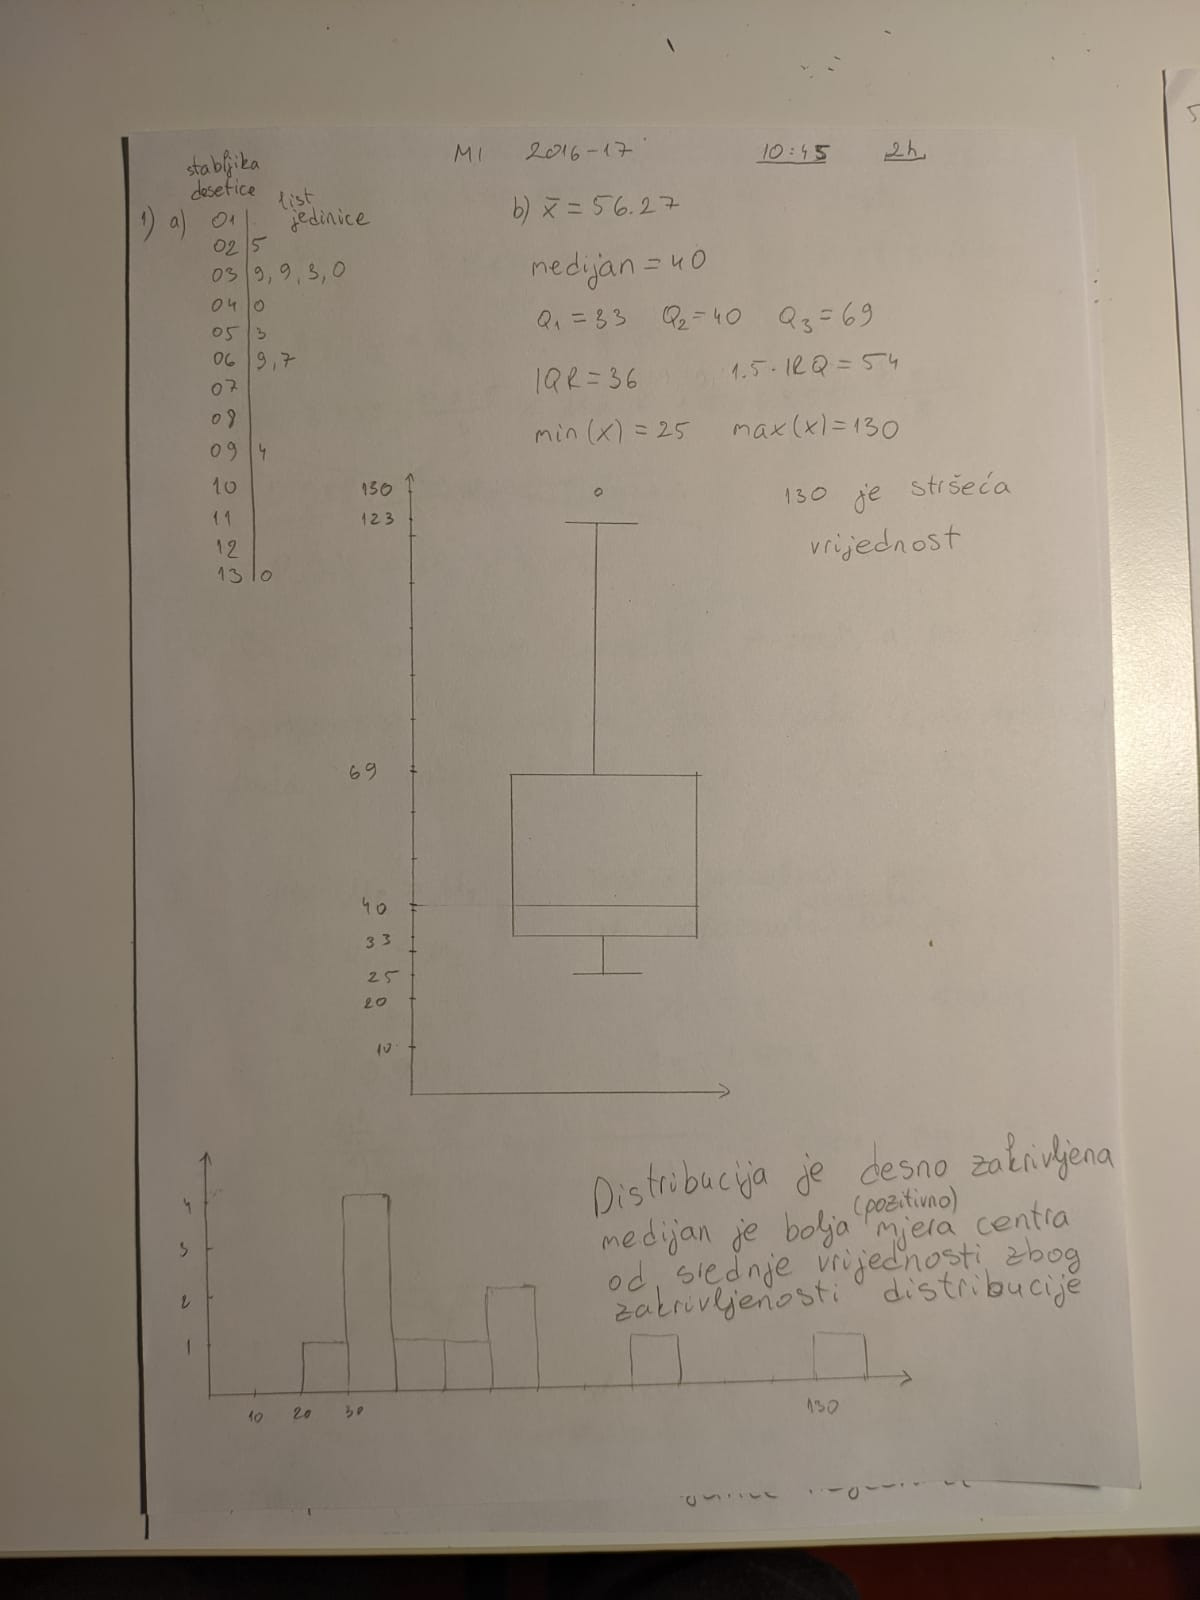 MI 2016-17 10:45 2h
stabljika
desetice list
jedinice
1) a) 01
02 5
03 9, 9, 3, 0
04 0
05 3
06 9, 7
07
08
09 4
10
11
12
13 0
b) x̄ = 56.27
medijan = 40
Q₁ = 33 Q₂ = 40 Q₃ = 69
IQR = 36 1.5 · IRQ = 54
min(x) = 25 max(x) = 130
130 je stršeća
vrijednost
130
123
69
40
33
25
20
10
Distribucija je desno zakrivljena
(pozitivno)
medijan je bolja mjera centra
od srednje vrijednosti zbog
zakrivljenosti distribucije
4
3
2
1
10 20 30 130